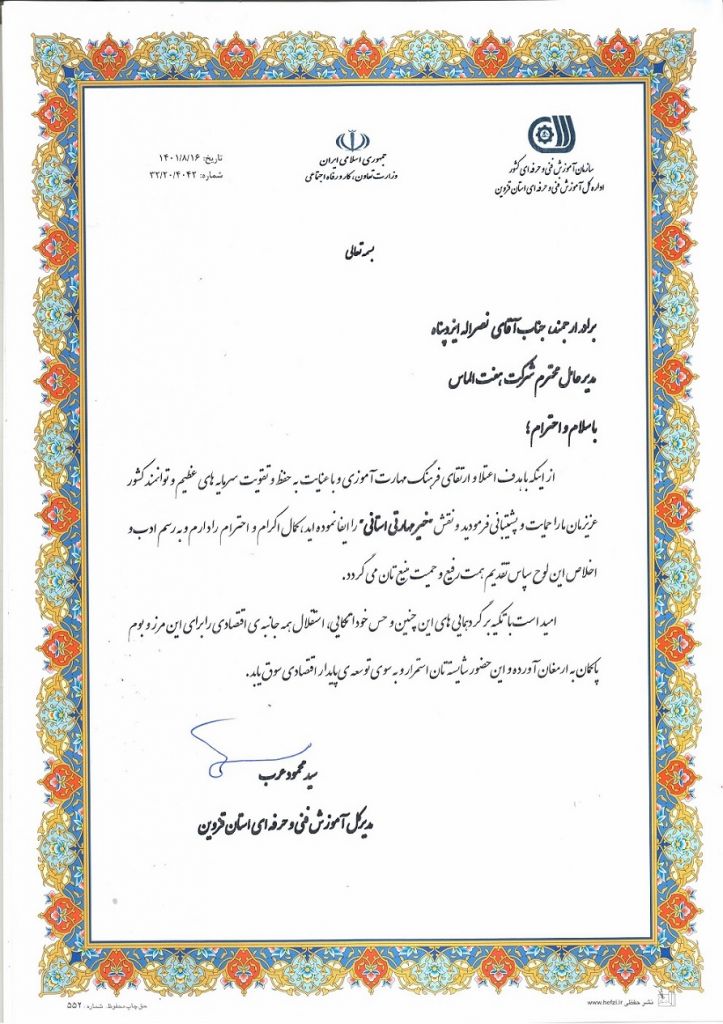 سازمان آموزش فنی و حرفه ای کشور
اداره کل آموزش فنی و حرفه ای استان قزوین
جمهوری اسلامی ایران
وزارت تعاون، کار و رفاه اجتماعی
تاریخ: ۱۴۰۱/۸/۱۶
شماره: ۳۲/۲۰/۴۰۴۲
بسمه تعالی
برادر ارجمند، جناب آقای نصراله ایزدپناه
مدیرعامل محترم شرکت هفت الماس
با سلام و احترام؛
از اینکه با هدف اعتلا و ارتقای فرهنگ مهارت آموزی و با عنایت به حفظ و تقویت سرمایه های عظیم و توانمند کشور
عزیزمان ما را حمایت و پشتیبانی فرمودید و نقش "خیر مهارتی استانی" را ایفا نموده اید، کمال اکرام و احترام را دارم و به رسم ادب و
اخلاص این لوح سپاس تقدیم همت رفیع و حمیت منیع تان می گردد.
امید است با تکیه بر گردهمایی های این چنین و حس خوداتکایی، استقلال همه جانبه ی اقتصادی را برای این مرز و بوم
پاکان به ارمغان آورده و این حضور شایسته تان استمرار و به سوی توسعه ی پایدار اقتصادی سوق یابد.
سید محمود عرب
مدیرکل آموزش فنی و حرفه ای استان قزوین
نشر حفظی www.hefzi.ir
حق چاپ محفوظ. شماره: ۵۵۲